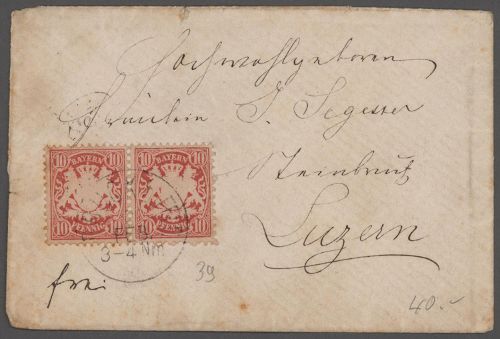 Hochwohlgeboren
Fräulein J. Segesser
Steinbruch
Luzern
10 BAYERN 10 10 BAYERN 10
10 PFENNIG 10 10 PFENNIG 10
3-4 Nm
frei
39
40.-